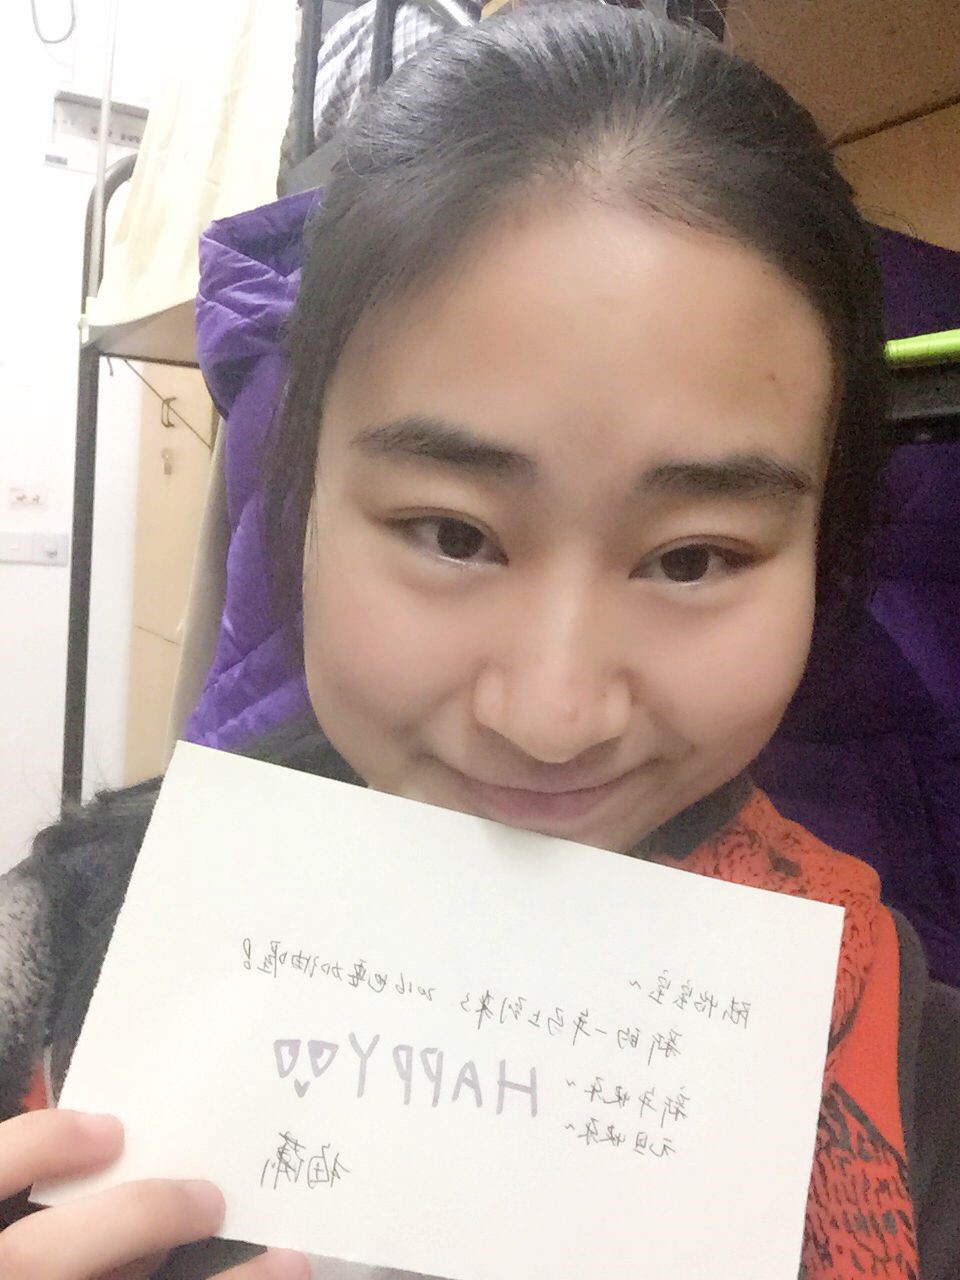 陈怡宝宝~
新的一年马上到来了 2016也要加油喔!
新年快乐~ HAPPY
元旦快乐~